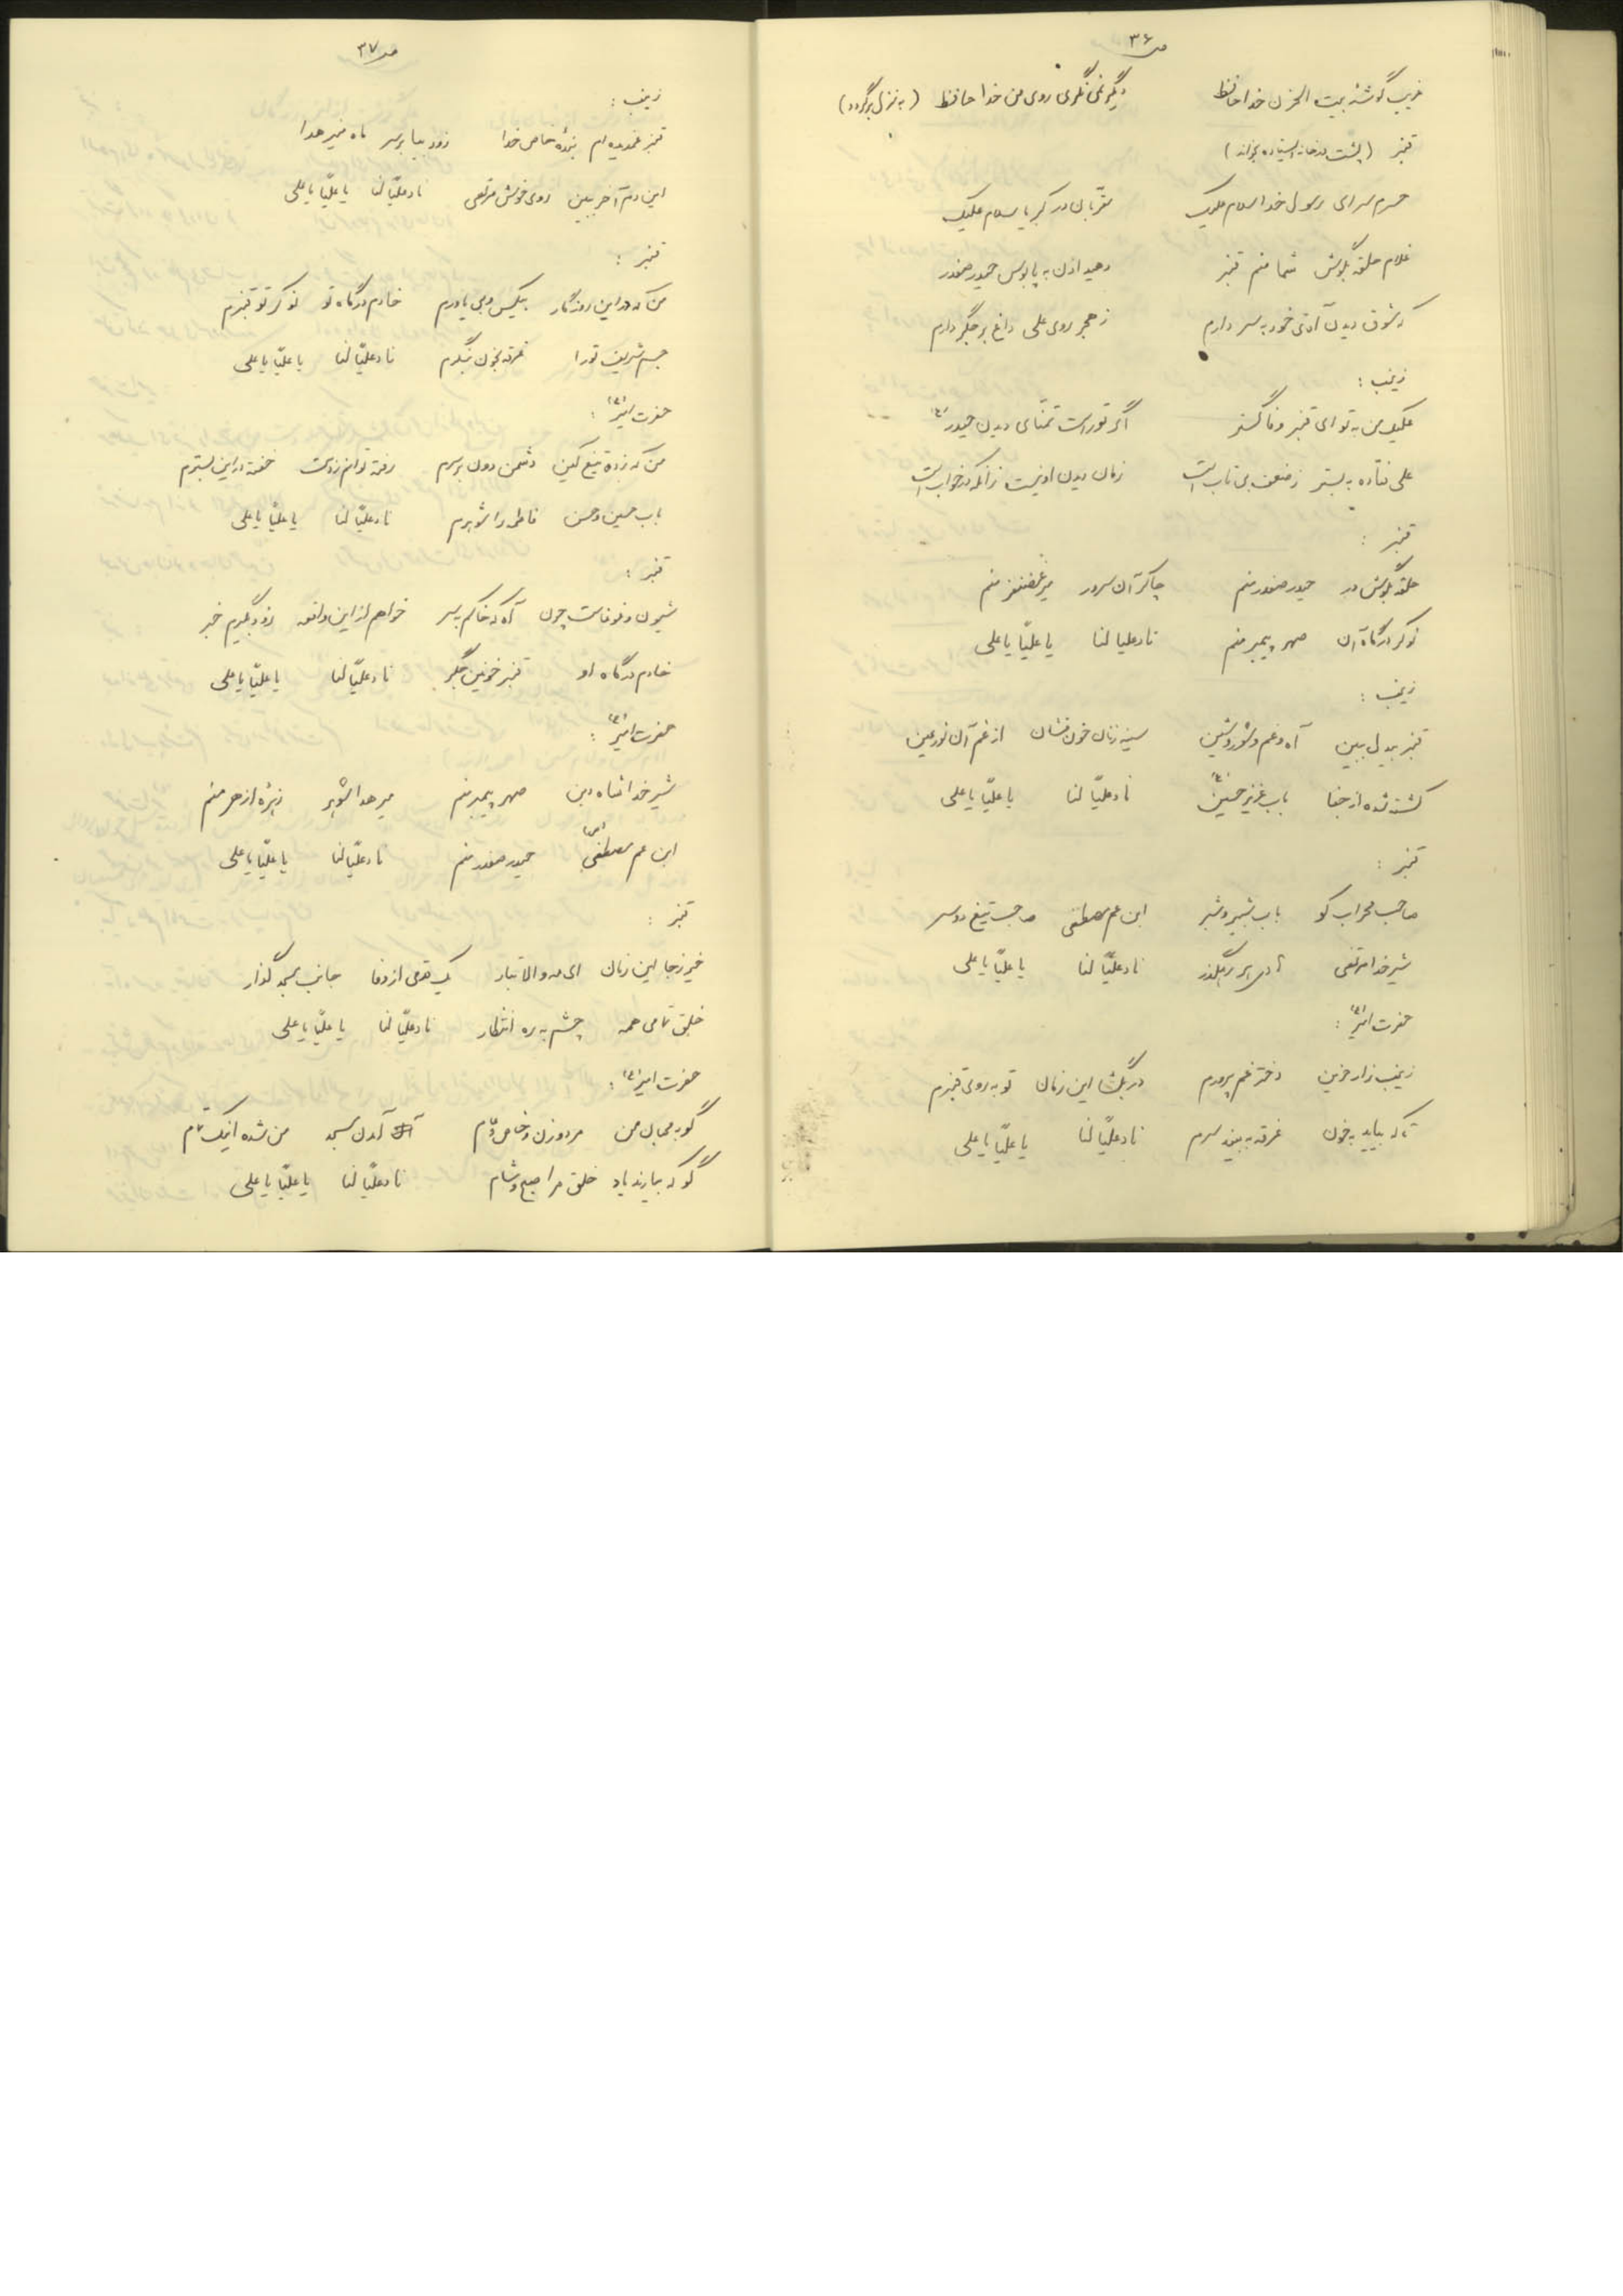 ص ۳۶
غریب گوشه بیت الحزن خدا حافظ دیگر نمی نگری روی من خدا حافظ (به منزل برگردد)
قنبر (پشت در خانه ایستاده بخواند)
حرم سرای رسول خدا سلام علیک مقربان در کبریا سلام علیک
غلام حلقه بگوش شما منم قنبر دهید اذن به پابوس حیدر صفدر
که شوق دیدن آقای خود به سر دارم ز هجر روی علی داغ بر جگر دارم
زینب :
علیک من به تو ای قنبر وفا گستر اگر تو راست تمنای دیدن حیدر (ع)
علی فتاده به بستر ز ضعف بی تاب است زمان دیدن او نیست زانکه در خواب است
قنبر :
حلقه بگوش در حیدر صفدر منم چاکر آن سرور میر غضنفر منم
نوکر درگاه آن صهر پیمبر منم ناد علیا لنا یا علیّا یا علی
زینب :
قنبر بیدل ببین آه و غم و شور و شین سینه زنان خون فشان از غم آن نور عین
کشته شده از جفا باب عزیز حسین (ع) ناد علیّا لنا یا علیّا یا علی
قنبر :
صاحب محراب کو باب شبیر و شبر ابن عم مصطفی صاحب تیغ دو سر
شیر خدا مرتضی هادی هر رهگذر ناد علیّا لنا یا علیّا یا علی
حضرت امیر (ع) :
زینب زار حزین دختر غم پرورم در بگشا این زمان تو به روی قنبرم
تا که بیاید به خون غرقه به بیند سرم ناد علیّا لنا یا علیّا یا علی
ص ۳۷
زینب :
قنبر غمدیده ام بندهٔ خاص خدا زود بیا بر سر ماه منیر هدا
این دم آخر ببین روی خوش مرتضی ناد علیّا لنا یا علیّا یا علی
قنبر :
من که در این روزگار بیکس و بی یاورم خادم درگاه تو نوکر تو قنبرم
جسم شریف تو را غرقه بخون بنگرم ناد علیّا لنا یا علیّا یا علی
حضرت امیر (ع) :
من که زده تیغ کین دشمن دون بر سرم رفته توانم ز دست خفته در این بسترم
باب حسین و حسن فاطمه را شوهرم ناد علیّا لنا یا علیّا یا علی
قنبر :
شیون و غوغاست چون آه که خاکم بسر خواهم از این واقعه زود بگیرم خبر
خادم درگاه او قنبر خونین جگر ناد علیّا لنا یا علیّا یا علی
حضرت امیر (ع) :
شیر خدا شاه دین صهر پیمبر منم میر هدا شوهر زهرهٔ ازهر منم
ابن عم مصطفی (ص) حیدر صفدر منم ناد علیّا لنا یا علیّا یا علی
قنبر :
خیز ز جا این زمان ای مه والا تبار یک قدمی از وفا جانب مسجد گذار
خلق تمامی همه چشم به ره انتظار ناد علیّا لنا یا علیّا یا علی
حضرت امیر (ع) :
گو به محبان من مرد و زن و خاص و عام آمدن مسجد من شده اینک تمام
گو که بیارند یاد خلق مرا صبح و شام ناد علیّا لنا یا علیّا یا علی